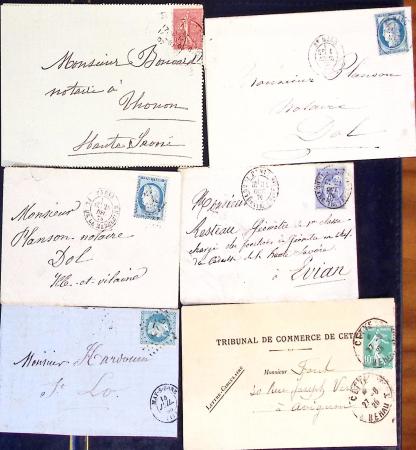 Monsieur Boucard
notaire à
Thonon
Haute Savoie
Monsieur Planson
Notaire
Dol
Monsieur
Planson notaire
Dol
Ille-et-vilaine
Monsieur
Resteau Géomètre de 1re classe
chargé des fonctions de Géomètre en chef
du Cadastre de la Haute Savoie
à Evian
Monsieur Hardouin
St Lo
TRIBUNAL DE COMMERCE DE CETTE
LETTRE-CIRCULAIRE
Monsieur
20 rue Joseph Vernet
à Avignon